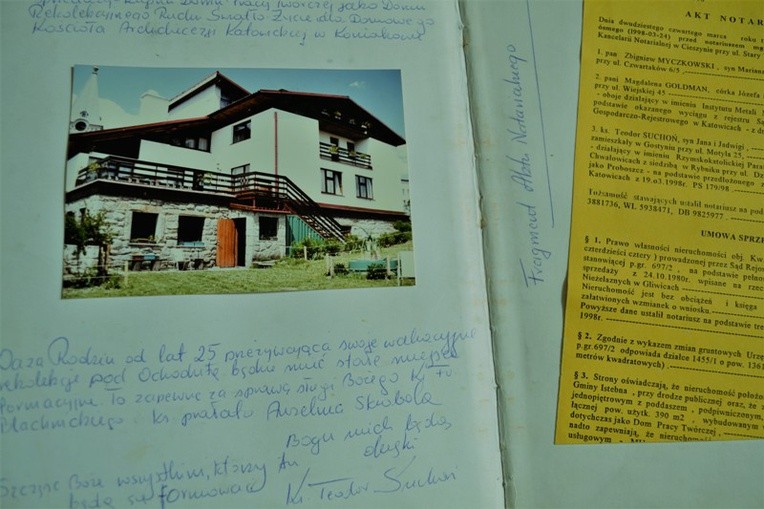 Rekolekcyjnego Ruchu Światło Życie dla Domowego
Kościoła Archidiecezji Katowickiej w Koniakowie
Oaza Rodzin od lat 25 przeżywająca swoje wakacyjne
rekolekcje pod Ochodzitą będzie mieć stałe miejsce
formacyjne. To zapewne za sprawą sługi Bożego Ks Fr
Blachnickiego i ks prałata Anselma Skrobola
Bogu niech będą
dzięki
Szczęść Boże wszystkim, którzy tu
będą się formować
Ks. Teodor Suchoń
Fragment Aktu Notarialnego
AKT NOTAR
Dnia dwudziestego czwartego marca roku
ósmego (1998-03-24) przed notariuszem
Kancelarii Notarialnej w Cieszynie przy ul. Stary
1. pan Zbigniew MYCZKOWSKI , syn Marian
przy ul. Czwartaków 6/5 ,
2. pani Magdalena GOLDMAN, córka Józefa i
przy ul. Wiejskiej 45
- oboje działający w imieniu Instytutu Metali
podstawie okazanego wyciągu z rejestru Są
Gospodarczo-Rejestrowego w Katowicach - z d
3. ks. Teodor SUCHOŃ, syn Jana i Jadwigi ,
zamieszkały w Gostynin przy ul. Motyla 25,
- działający w imieniu Rzymskokatolickiej Para
Chwałowicach z siedzibą w Rybniku przy ul. D
jako Proboszcz - na podstawie przedłożonego
Katowicach z 19.o3.1998r. PS 179/98
Tożsamość stawających ustalił notariusz na podst
3881736, WL 5938471, DB 9825977 .
UMOWA SPRZE
§ 1. Prawo własności nieruchomości obj. Kw.
czterdzieści cztery ) prowadzonej przez Sąd Rejo
stanowiącej p.gr. 697/2 , na podstawie pełno
sprzedaży z 24.10.1980r. wpisane na rzecz
Nieżelaznych w Gliwicach
Nieruchomość jest bez obciążeń i księga
załatwionych wzmianek o wniosku.
Powyższe dane ustalił notariusz na podstawie tre
1998r.
§ 2. Zgodnie z wykazem zmian gruntowych Urzę
p.gr.697/2 odpowiada działce 1455/1 o pow. 1361
metrów kwadratowych) .
§ 3. Strony oświadczają, że nieruchomość położo
Gminy Istebna , przy drodze publicznej oraz, że z
jednopiętrowym z poddaszem , podpiwniczonym,
łącznej pow. użytk. 390 m2 . wybudowanym w
dotychczas jako Dom Pracy Twórczej ,
nadto zapewniają, że nieruchomość
usługowym -